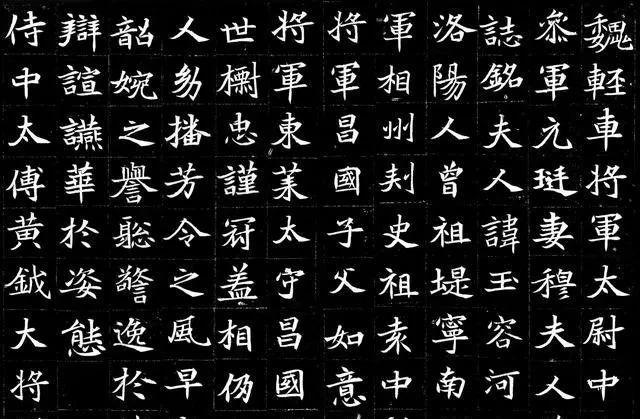 魏輕車將軍太尉中
叅軍元珽妻穆夫人
誌銘夫人諱玉容河
洛陽人曾祖堤寧南
軍相州刾史祖袁中
將軍昌國子父如意
將軍東萊太守昌國
世樹忠謹冠盖相仍
人幼播芳令之風早
韶婉之譽聡警逸於
辯諠讌華於姿態
侍中太傅黄鉞大將